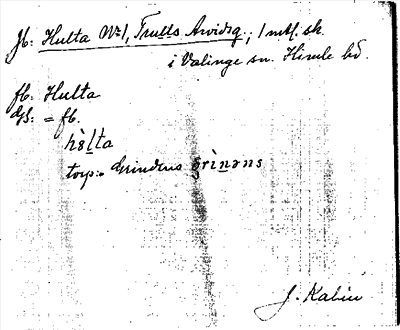 Jb: Hulta No 1, Trulls Arvidsg., 1 mtl. sk.
i Valinge sn. Himle hd.
fb: Hulta
ds: = fb.
hòlta
torp: Grindens grìnəns
J. Kalin